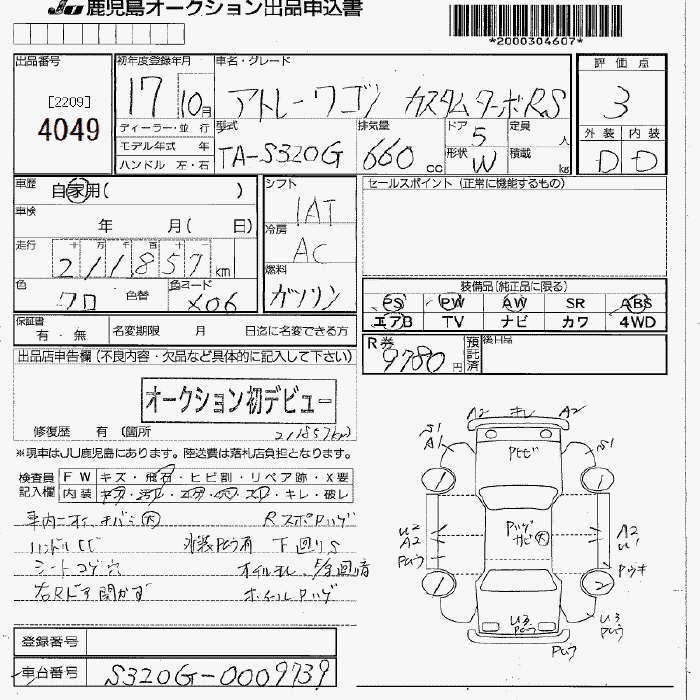 JU 鹿児島オークション出品申込書
*2000304607*
出品番号
[2209]
4049
初年度登録年月
17 10月
車名・グレード
アトレーワゴン カスタムターボRS
評価点
3
外装 内装
D D
ディーラー・並 行
モデル年式 年
ハンドル 左・右
型式
TA-S320G
排気量
660 cc
ドア 5
形状 W
定員 人
積載 kg
車歴
自家用( )
車検
年 月( 日)
走行
十 万 千 百 十 一
211857 km
色
クロ
色替
色コード
X06
シフト
IAT
冷房
AC
燃料
ガソリン
セールスポイント(正常に機能するもの)
装備品(純正品に限る)
PS PW AW SR ABS
エアB TV ナビ カワ 4WD
保証書
有・無
名変期限 月 日迄に名変できる方
R券
9780円
預託済
後日品
出品店申告欄(不良内容・欠品など具体的に記入して下さい)
オークション初デビュー
修復歴 有(箇所
211857km
※現車はJU鹿児島にあります。陸送費は落札店負担となります。
検査員記入欄
FW キズ・飛石・ヒビ割・リペア跡・X要
内装 ・キレ・破レ
車内ニオイ キバミ大
RスポPハゲ
ハンドルヒビ
外装Pムラ有
下廻りS
シートコゲ穴
オイルモレ
右Rドア開かず
ホイールPハゲ
A2 キレ A2
S1
A1
S1
Pトビ
1
1
U2
A2
Pムラ
Pハゲ
大
A2
U1
Pウキ
1
2
U3
Pムラ
U3
Pムラ
Pムラ
登録番号
車台番号
S320G-0009739